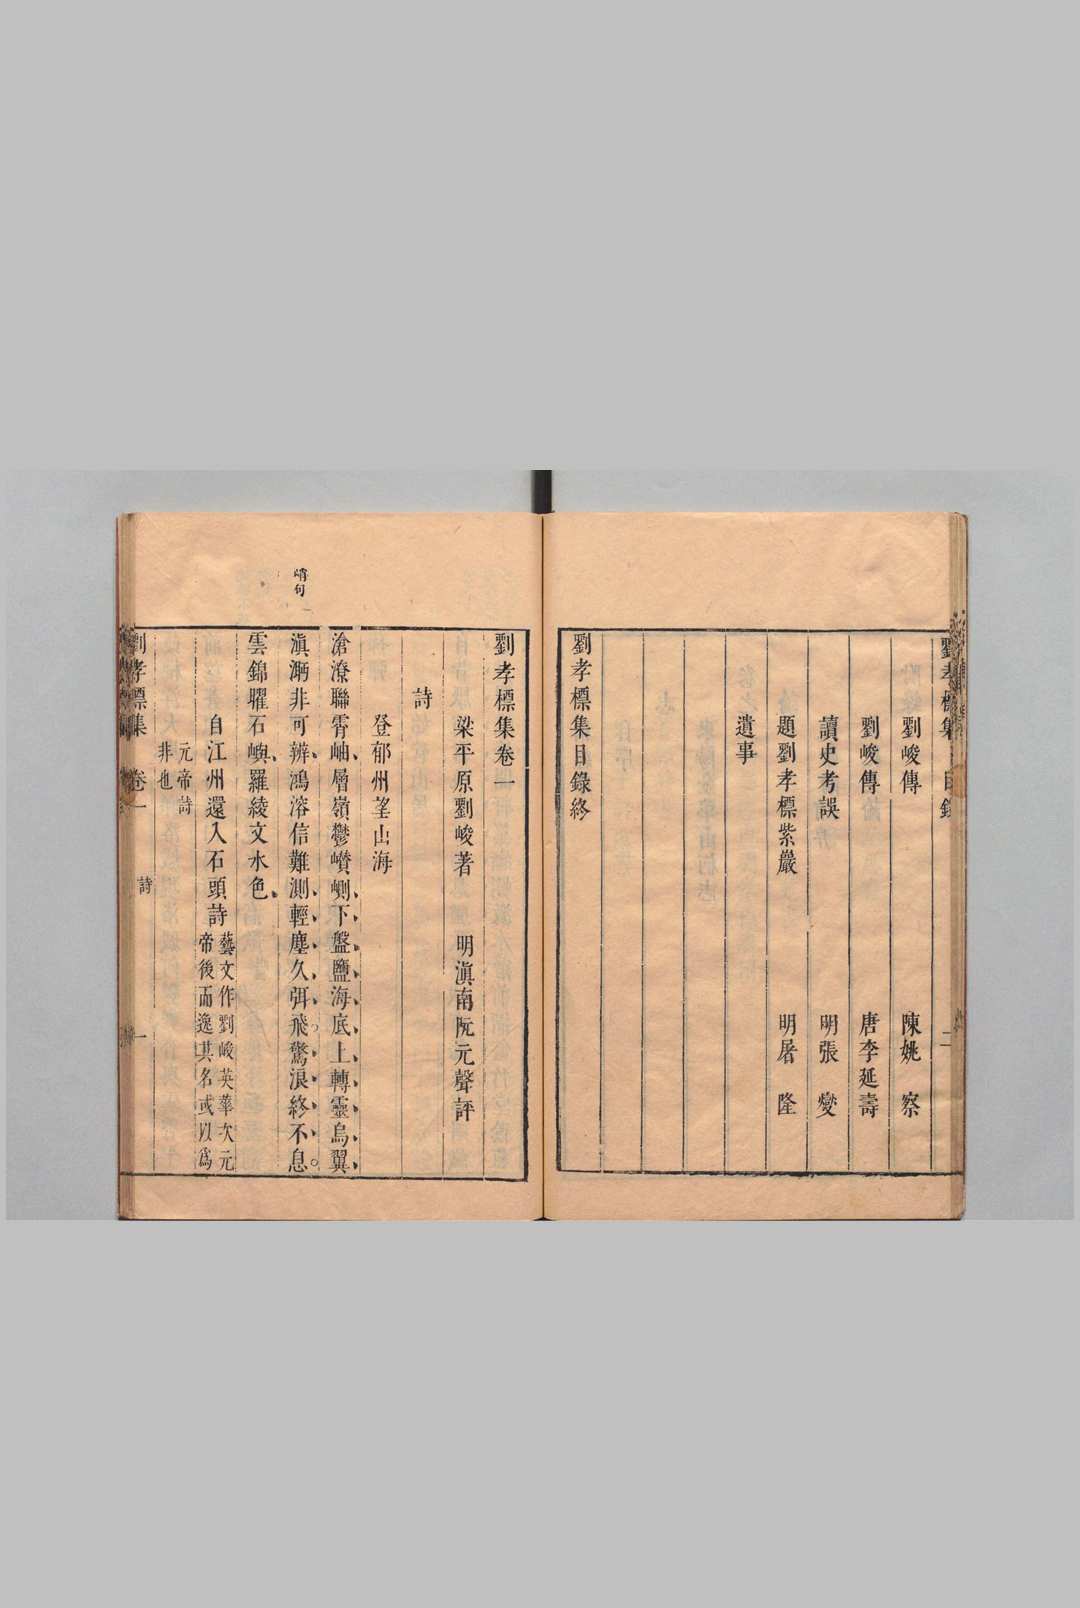 劉孝標集 目錄 二
劉峻傳 陳姚 察
劉峻傳 唐李延壽
讀史考誤 明張 燮
題劉孝標紫巖 明屠 隆
遺事
劉孝標集目錄終
劉孝標集卷一
梁平原劉峻著 明滇南阮元聲評
詩
登郁州望山海
滄潦聯霄岫層嶺鬱巑峢下盤鹽海底上轉靈烏翼
滇沔非可辨鴻溶信難測輕塵久弭飛驚浪終不息
雲錦曜石嶼羅綾文水色
自江州還入石頭詩
藝文作劉峻英華次元
帝後而逸其名或以爲
元帝詩
非也
劉孝標集 卷一 詩 一
句